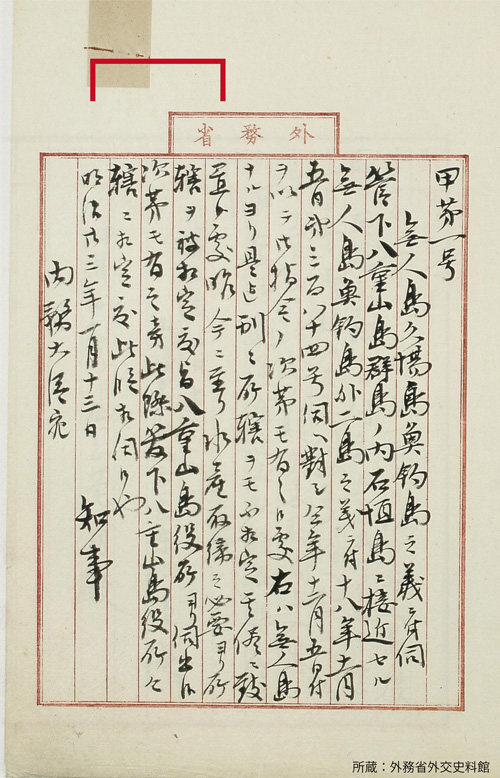 外務省
甲第一号
無人島久場島魚釣島之義ニ付伺
管下八重山島群島ノ内石垣島ニ接近セル
無人島魚釣島外二島之義ニ付十八年十一月
五日第三百八十四号伺ヘ対シ仝年十二月五日付
ヲ以テ御指令ノ次第モ有之候処右ハ無人島
ナルヨリ是迄別ニ所轄ヲモ不相定其儘ニ致
置候処昨今ニ至リ水産取締之必要ヨリ所
轄ヲ被相定度旨八重山島役所ヨリ伺出候
次第モ有之旁此際管下八重山島役所々
轄ニ相定度此段相伺候也
明治廿三年一月十三日 知事
内務大臣宛
所蔵：外務省外交史料館